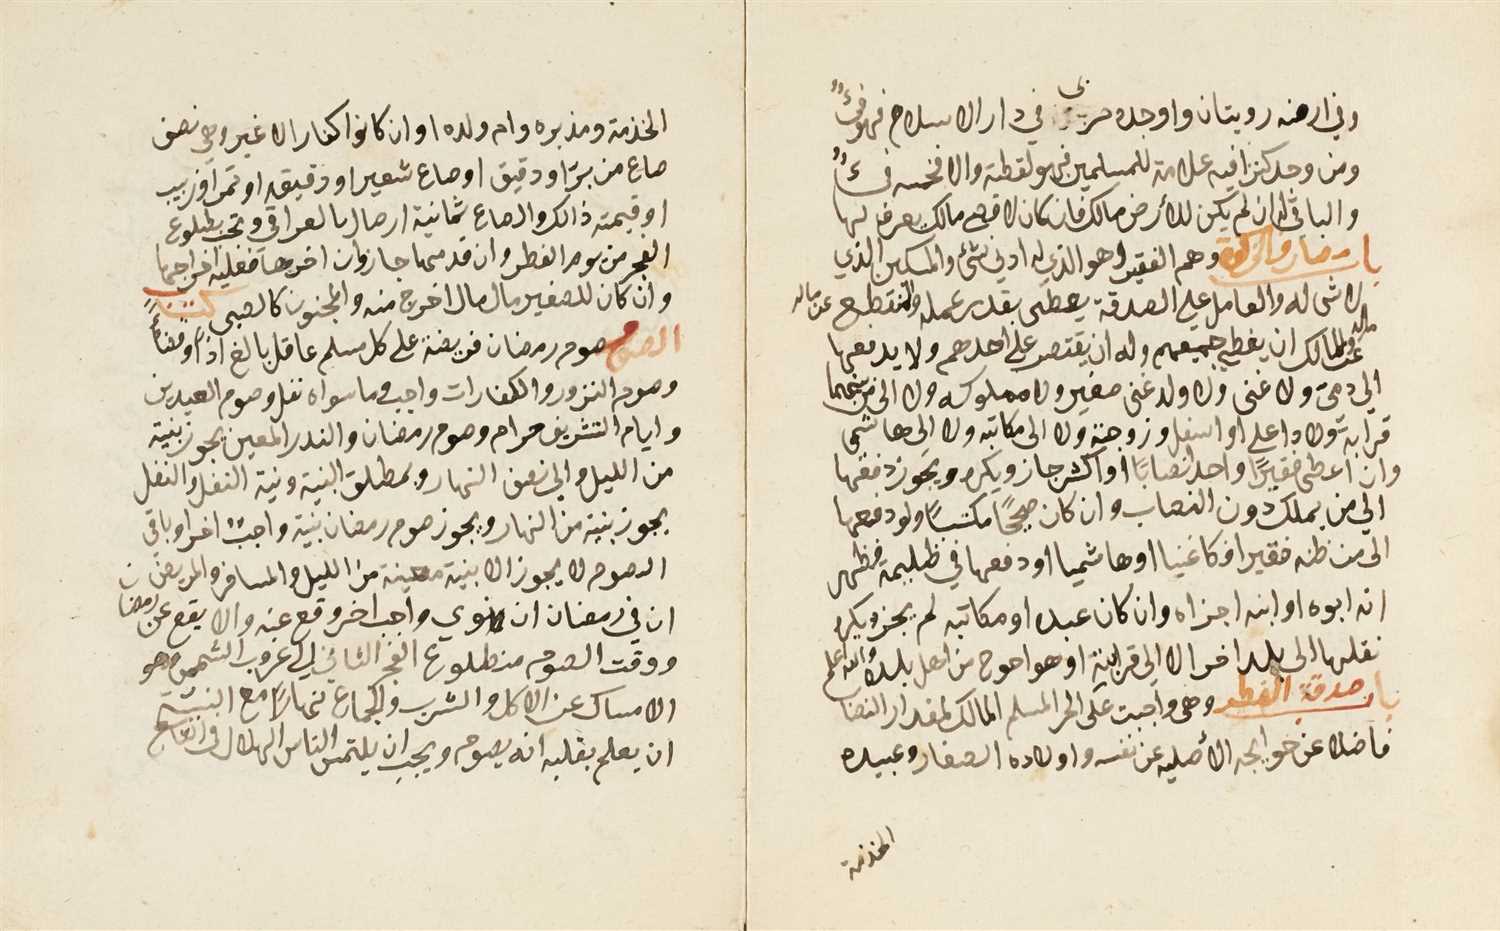 وفي ارضه رويتان واوجده حربي في دار الاسلام فهو فيء
ومن وجد كنزا فيه علامة للمسلمين فهو لقطة والا فخمسه فيء
والباقي له ان لم يكن للأرض مالك فان كان لاقصى مالك يعرف لها
باب مصارف الزكوة وهم الفقير وهو الذي له ادنى شئ والمسكين الذي
لا شى له والعامل على الصدقة يعطى بقدر عمله والمنقطع عن ماله
وللمالك ان يعطي جميعهم وله ان يقتصر على احدهم ولا يدفعها
الى ذمى ولا غنى ولا ولد غنى صغير ولا مملوكه ولا الى من بينهما
قرابة ولاد اعلى او اسفل وزوجة ولا الى مكاتبه ولا الى هاشمى
وان اعطى فقيرًا واحد نصابًا او اكثر جاز ويكره ويجوز دفعها
الى من يملك دون النصاب وان كان صحيحًا مكتسبًا ولو دفعها
الى من ظنه فقيرا فكا غنيا او هاشميا او دفعها في ظلمة فظهر
انه ابوه او ابنه اجزاه وان كان عبده او مكاتبه لم يجز ويكره
نقلها الى بلد اخر الا الى قرابته او هو احوج من اهل بلده والله اعلم
باب صدقة الفطر وهى واجبت على الحر المسلم المالك لمقدار النصاب
فاضلا عن حوايجه الأصليه عن نفسه واولاده الصغار وعبيده
الخذمة
الخذمة ومدبره وام ولده او ان كانوا كفارا لا غير وهي نصف
صاع من برّ او دقيق او صاع شعير او دقيقه او تمر او زبيب
او قيمته ذالك والصاع ثمانية ارطال بالعراقي وتجب بطلوع
الفجر من يوم الفطر وان قدمها جاز وان اخرها فعليه اخراجها
وان كان للصغير مال اخرج منه والمجنون كالصبى كتاب
الصوم صوم رمضان فريضة على كل مسلم عاقل بالغ اداً وقضاً
وصوم النزور والكفارات واجب وما سواه نفل وصوم العيدين
وايام التشريق حرام وصوم رمضان والندر المعين يجوز بنية
من الليل والى نصف النهار وبمطلق النية ونية النفل والنفل
يجوز بنية من النهار ويجوز صوم رمضان بنية واجب اخر وباقي
الصوم لا يجوز الا بنية معينة من الليل والمسافر والمريض
ان في رمضان ان نوي واجب اخر وقع عنه والا يقع عن رمضان
ووقت الصوم من طلوع الفجر الثاني الى غروب الشمس وهو
الامساك عن الاكل والشرب والجماع نهارًا مع النية
ان يعلم بقلبه انه يصوم ويجب ان يلتمس الناس الهلال في التاسع